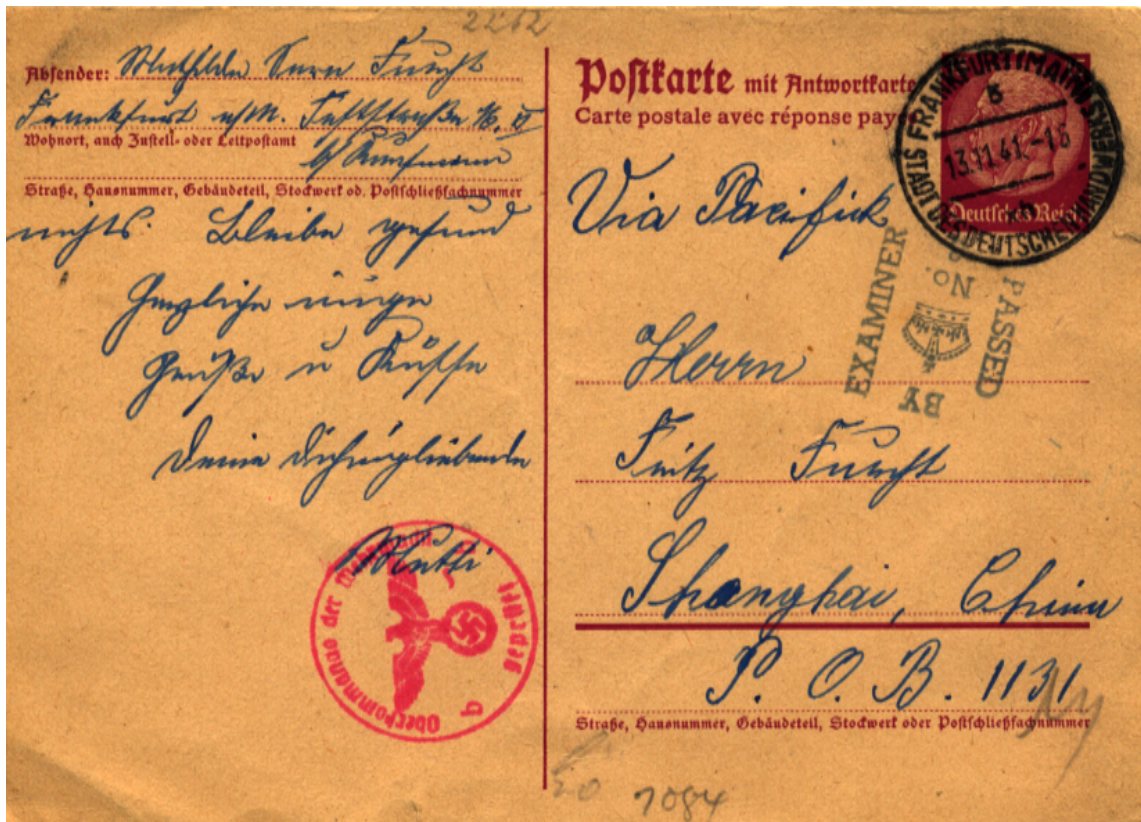 2262
Absender: Mathilde Sara Furcht
Frankfurt a/M.
Wohnort, auch Zustell- oder Leitpostamt
b/ Kaufmann
Straße, Hausnummer, Gebäudeteil, Stockwerk od. Postschließfachnummer
nichts. Bleibe gesund
Herzliche innige
Grüße u Küsse
Deine Dich innigliebende
Mutti
Oberkommando der Wehrmacht
geprüft
b
Postkarte mit Antwortkarte
Carte postale avec réponse payée
STADT DES DEUTSCHEN HANDWERKS FRANKFURT (MAIN)
13.11.41.-16
Deutsches Reich
Via Pacifick
PASSED
BY
EXAMINER
No.
Herrn
Fritz Furcht
Shanghai, China
P. O. B. 1131
Straße, Hausnummer, Gebäudeteil, Stockwerk oder Postschließfachnummer
7084